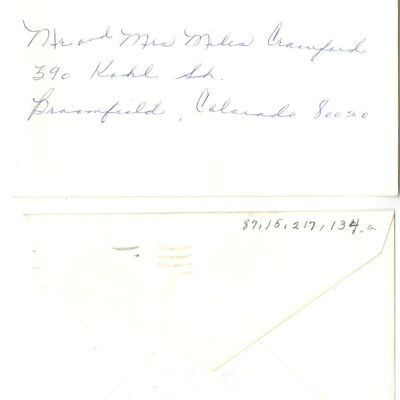 Mr and Mrs Miles Crawford
390 Kohl St.
Broomfield, Colorado 80020
87,15,217,134.a